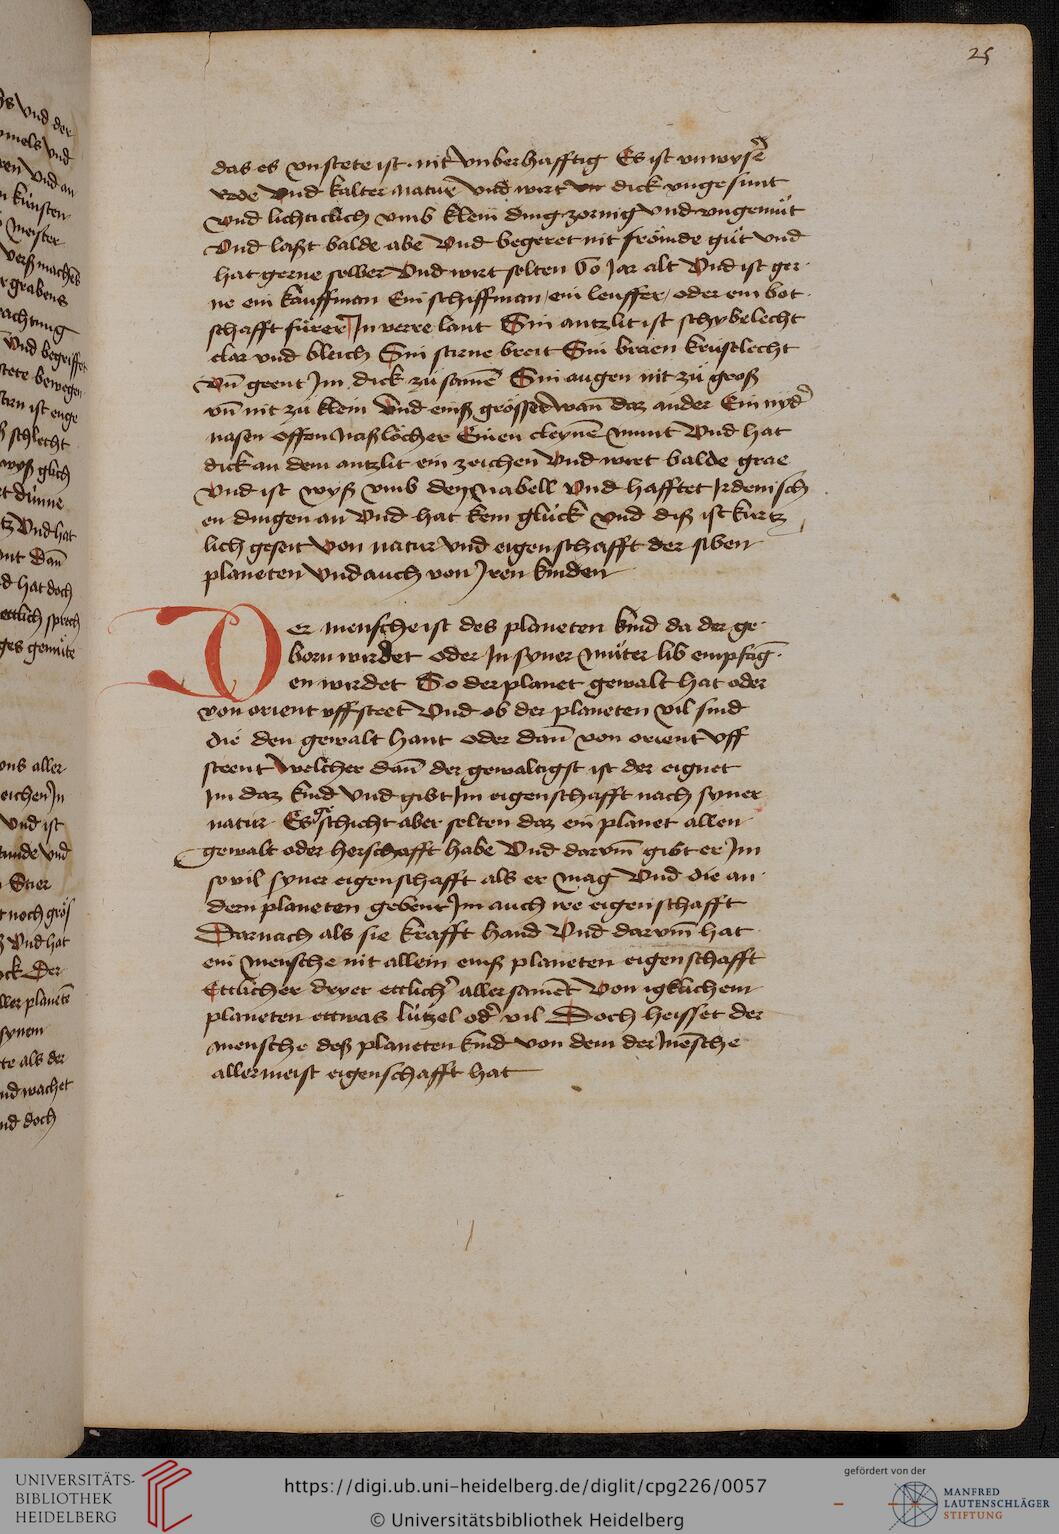 25
das es vnstete ist · nit vnberhafftig Es ist vnwyser
rede Vnd kalter natur Vnd wirt dick vngesunt
Vnd lichticlich vmb klein ding zornig Vnd vngemüt
Vnd laßt balde abe Vnd begeret nit frömde güt vnd
hat gerne selber Vnd wirt selten 60 Jar alt Vnd ist ger
ne ein kauffman Ein schiffman / ein leuffer / oder ein bot
schafft fürer In verre lant Sin antzlit ist schybelecht
clar vnd bleich Sin stirne breit Sin braen kruselecht
vn̄ geent Jm dick zü samē Sin augen nit zü groß
vn̄ nit zü klein Vnd einß grösser wan̄ daz ander Ein nyder
nasen offen naßlöcher Einen cleynē munt Vnd hat
dick an dem antzlit ein zeichen Vnd wirt balde grae
Vnd ist wyß vmb den nabell Vnd hafftet Jrdenisch
en dingen an Vnd hat kein glück Vnd diß ist kurtz
lich geseit Von natur vnd eigenschafft der siben
planeten Vnd auch von Jren kinden
Der mensche ist des planeten kind da der ge
born wirdet oder Jn syner müter lib empfāg
en wirdet So der planet gewalt hat oder
von orient vffsteet Vnd ob der planeten vil sind
die den gewalt hant oder dan̄ von orient vff
steent welcher dan̄ der gewaltigst ist der eignet
Jm daz kind Vnd gibt Jm eigenschafft nach syner
natur Es schicht aber selten daz ein planet allen
gewalt oder herschafft habe Vnd darvm̄ gibt er Jm
so vil syner eigenschafft als er mag Vnd die an
dern planeten gebent Jm auch ire eigenschafft
Darnach als sie krafft hand Vnd darvm̄ hat
ein mensche nit allein einß planeten eigenschafft
Ettlicher dryer ettlicher aller samēt Von iglichem
planeten ettwas lützel oder vil Doch heisset der
mensche deß planeten kind von dem der mēsche
allermeist eigenschafft hat
UNIVERSITÄTS-
BIBLIOTHEK
HEIDELBERG
https://digi.ub.uni-heidelberg.de/diglit/cpg226/0057
© Universitätsbibliothek Heidelberg
gefördert von der
MANFRED
LAUTENSCHLÄGER
STIFTUNG